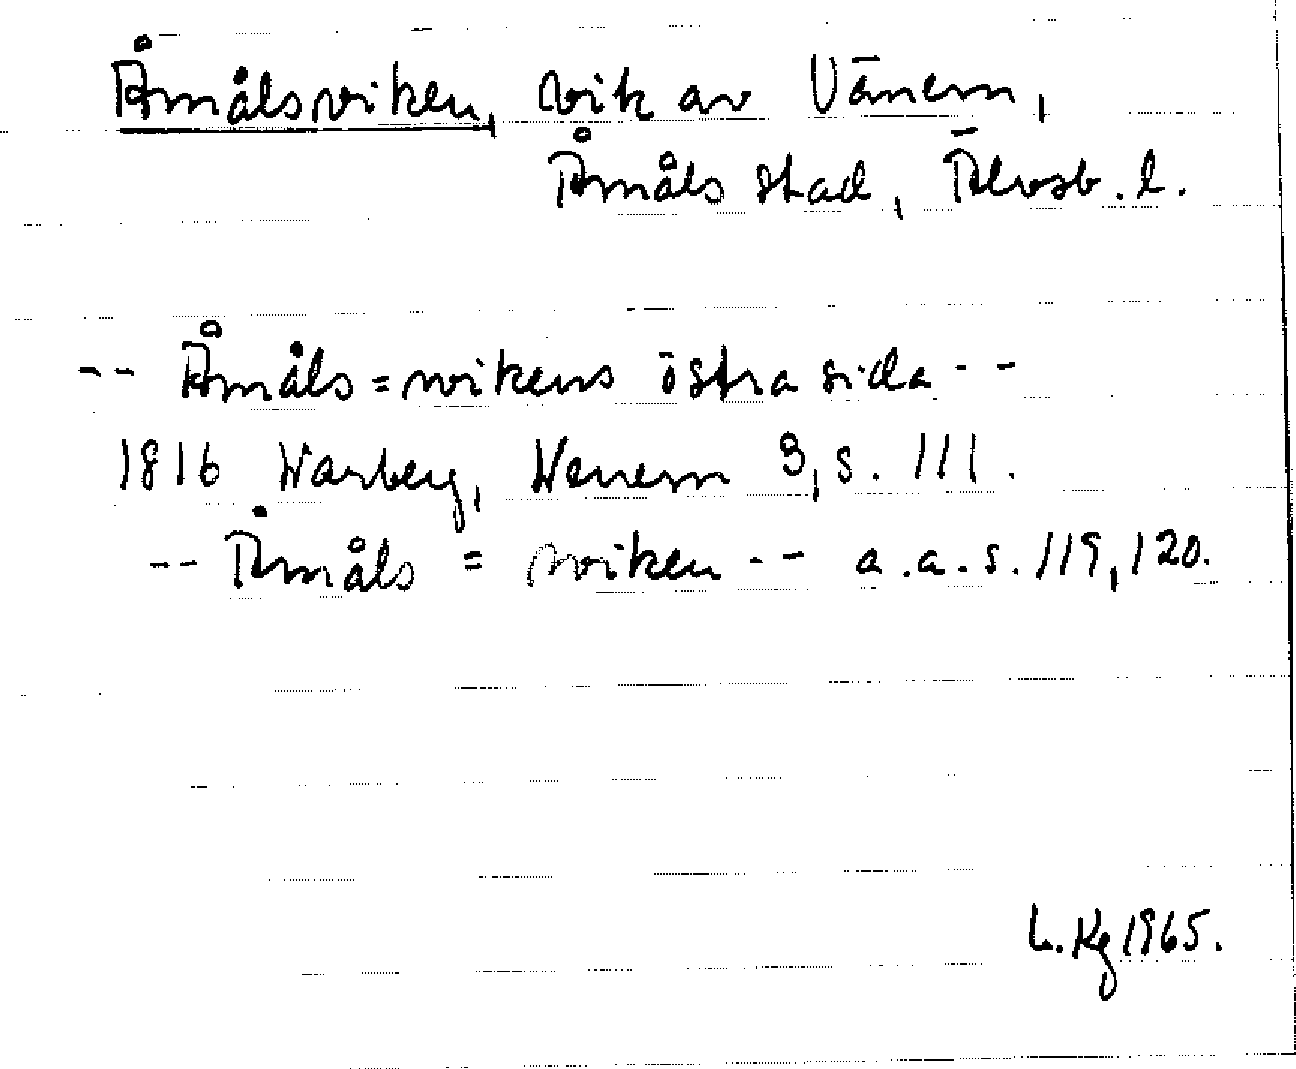 Åmålsviken, vik av Vänern,
Åmåls stad, Älvsb. l.
-- Åmåls=wikens östra sida --
1816 Warberg, Wenern 3, s. 111.
-- Åmåls = wiken -- a.a. s. 119, 120.
L. Kg 1965.